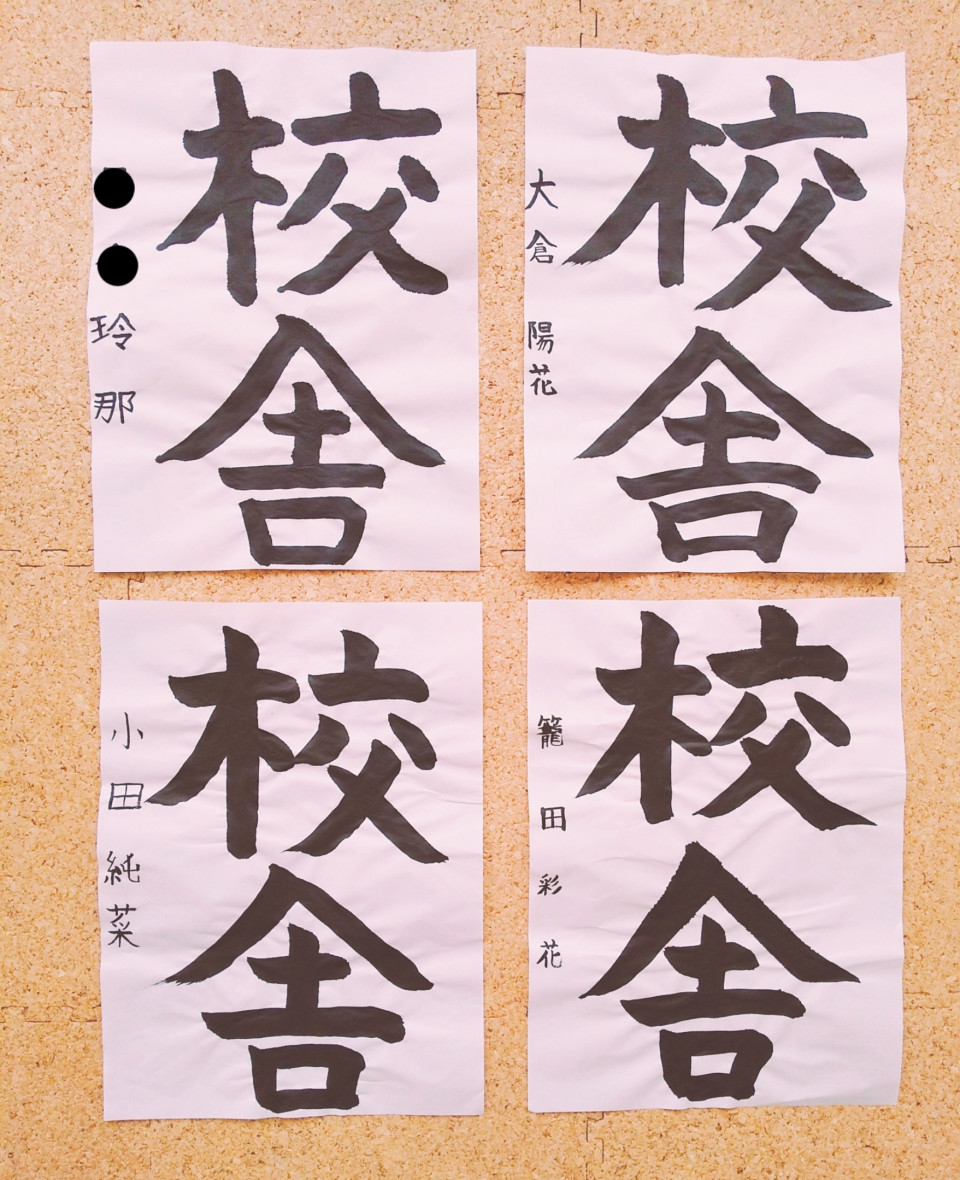 校舎
玲那
校舎
大倉陽花
校舎
小田純菜
校舎
籠田彩花